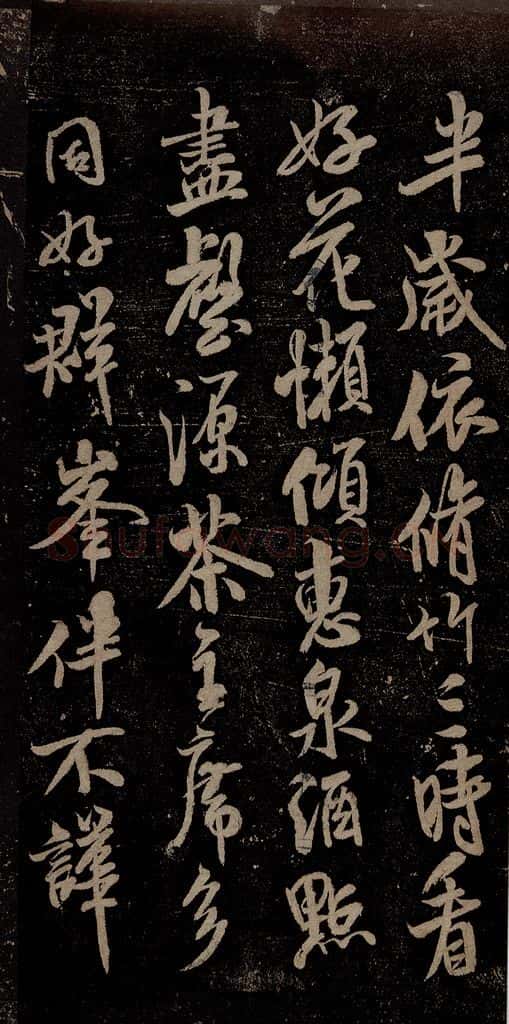 半歲依脩竹三時看
好花懶傾惠泉酒點
盡壑源茶主席多
同好群峯伴不譁